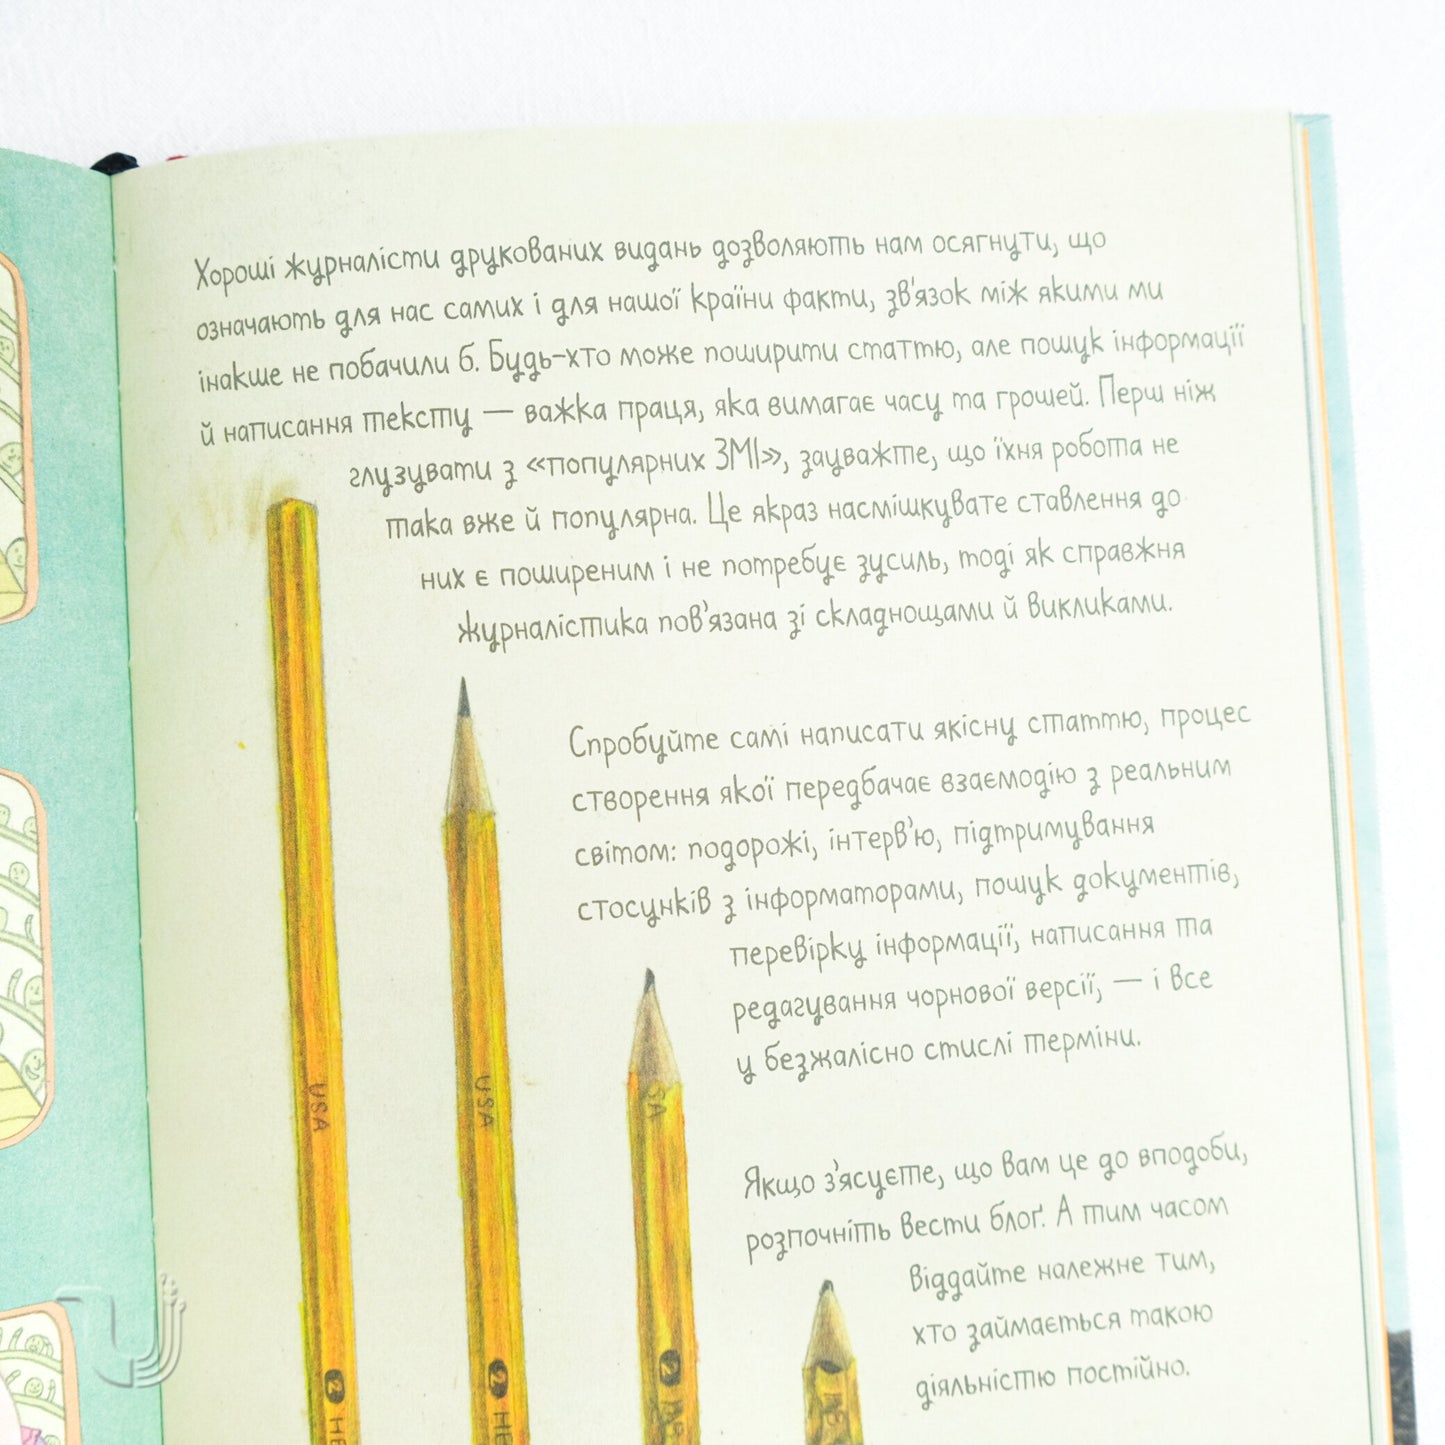 Хороші журналісти друкованих видань дозволяють нам осягнути, що
означають для нас самих і для нашої країни факти, зв'язок між якими ми
інакше не побачили б. Будь-хто може поширити статтю, але пошук інформації
й написання тексту — важка праця, яка вимагає часу та грошей. Перш ніж
глузувати з «популярних ЗМІ», зауважте, що їхня робота не
така вже й популярна. Це якраз насмішкувате ставлення до
них є поширеним і не потребує зусиль, тоді як справжня
журналістика пов'язана зі складнощами й викликами.
Спробуйте самі написати якісну статтю, процес
створення якої передбачає взаємодію з реальним
світом: подорожі, інтерв'ю, підтримування
стосунків з інформаторами, пошук документів,
перевірку інформації, написання та
редагування чорнової версії, — і все
у безжалісно стислі терміни.
Якщо з'ясуєте, що вам це до вподоби,
розпочніть вести блоґ. А тим часом
віддайте належне тим,
хто займається такою
діяльністю постійно.
USA
USA
SA
2 HB
2 HB
2